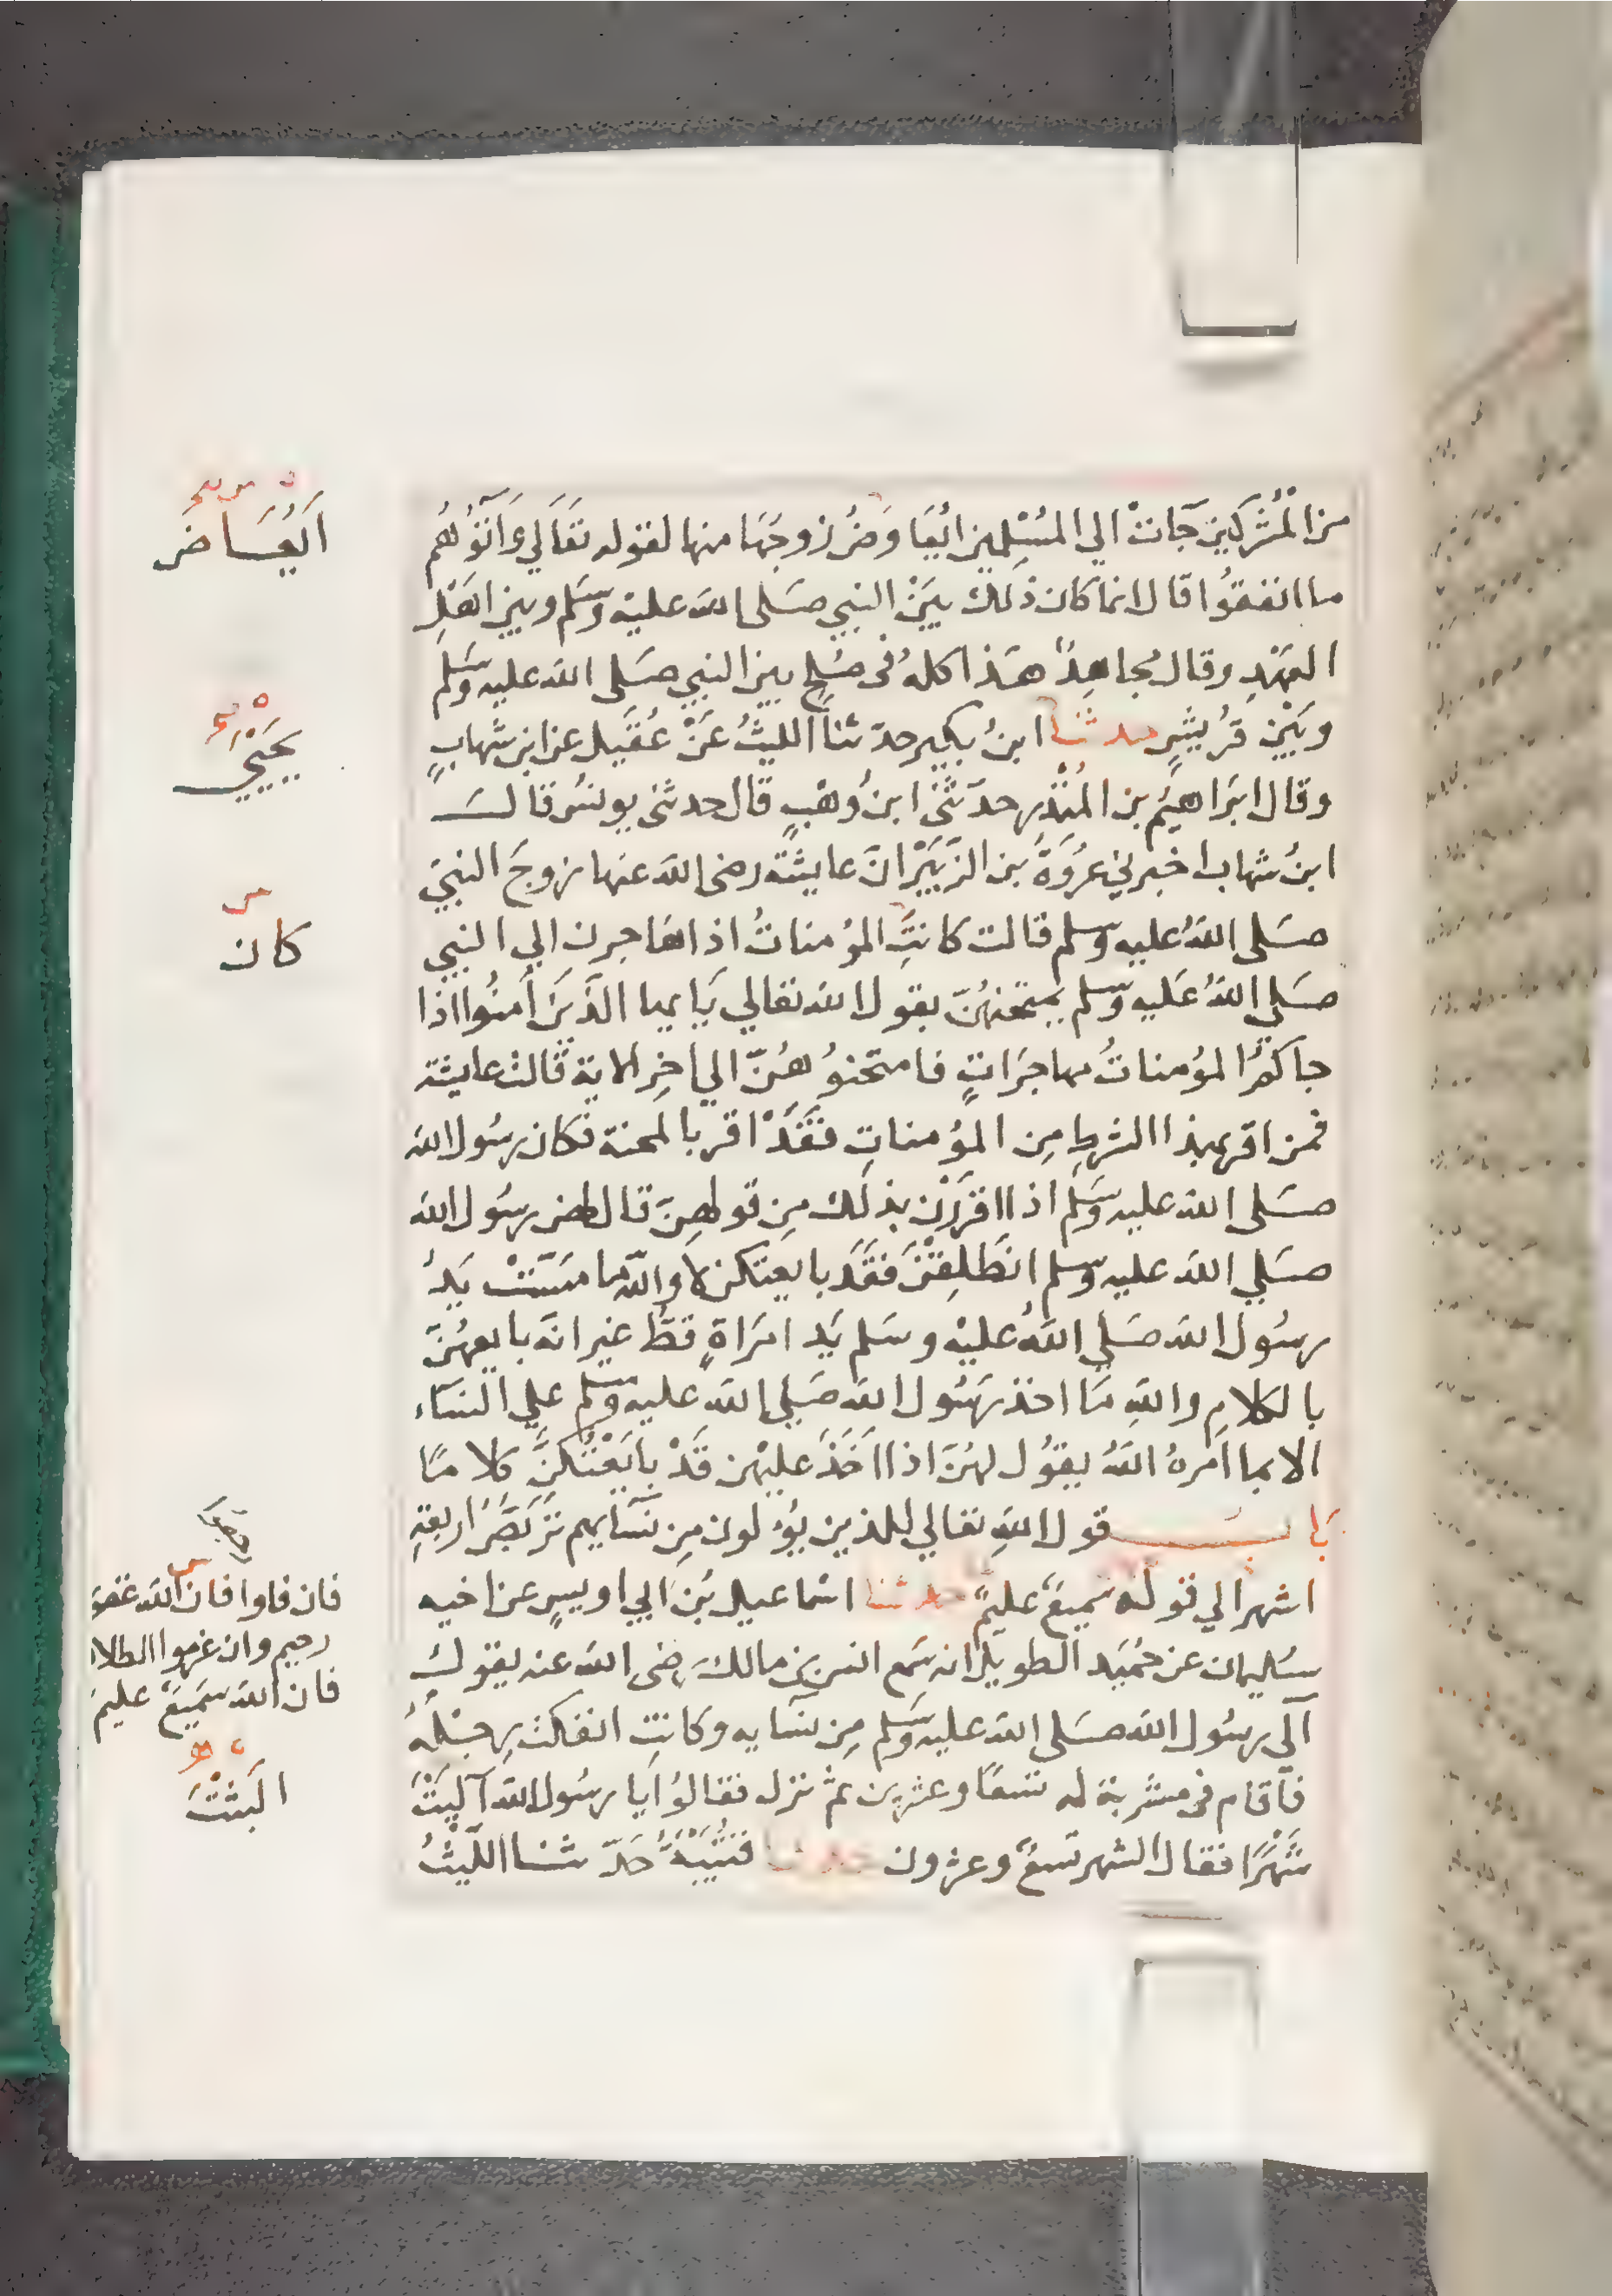 من المُشْرِكِينَ جَآتْ الي المُسْلِمِين ايُعَاوَضُ زوجُهَا منها لقوله تَعَالَي وَآتُوْهُم
ما انفقُوا قال لا انما كان ذلك بَيْنَ النبي صَلى الله عليه وَسَلم وبين اهْلِ
العَهْدِ وقال مُجاهِدٌ هَذا كله في صُلحٍ بين النبي صَلى الله عليه وَسَلم
وبَيْن قرُيْشٍ حدثنا ابنُ بكير حدّثنا الليثُ عَنْ عُقَيل عن ابن شهابٍ
وقال ابْرَاهيْمُ بن المُنْذِرِ حدّثَني ابنُ وَهْبٍ قال حدثني يونسُ قالَ
ابنُ شهاب اخبرني عرُوَةُ بن الزبَيْرِ انّ عايشَة رضي الله عنها زوجَ النبيّ
صَلى اللهُ عليه وسلم قالت كانَتِ المؤمناتُ اذا هَاجرن الي النبي
صَلي اللهُ عَليه وسلم يمتحنهُنّ بقول الله تعالي يَايها الذَينَ اَمنُوا اذا
جاكمُ المؤمناتُ مهاجرَاتٍ فامتحنوُهُنّ الي اخِر الاية قالتْ عايشة
فمن اقر بهذا الشرطِ مِن المؤمناتِ فقَدْ اقر بالمحنة فكان رسُول الله
صَلى الله عليه وَسَلم اذا اقرَرْن بذلك مِن قولهِنّ قال لهن رسُول الله
صَلي الله عليه وسلم انطَلِقْنَ فقَدَ بايعتكن لا واللهِ ما مسَّتْ يَدُ
رسُول الله صَلي اللهُ عليْه وسَلم يَد امرَاةٍ قطُّ غير انَه بايعهُنّ
بالكلامِ واللهِ مَا اخذ رسُول الله صَلي الله عليه وسَلم علي النسَاء
الا بما امرهُ اللهُ يقوُل لهُنّ اذا اَخَذَ عليهْن قَدْ بايَعْتُكنَّ كلامًا
بَابُ قول اللهِ تعالي للذين يُؤلون مِن نسَايهم تَرَبّصُ اربعةِ
اشهر الي قوله سَميعٌ عليمٌ حدثنا اسْماعيل بْن ابي اويسٍ عن اخيه
سُليمان عن حُمَيد الطويل انه سَمع انس بن مالك رضي الله عنه يقول
آلَى رسُول الله صَلى الله عليه وَسَلم مِن نسَايه وكانتِ انفكتْ رِجْلُهُ
فاقام في مشرُبة له تسعًا وعشرين ثمّ نزل فقالوُا يا رسُول الله آليْتَ
شهْرًا فقال الشهر تسْعٌ وعشرون حدثنا قتَيْبَةُ حَدّثنا اللّيْثُ
اَيُعَاضَ
يَحَيْي
كان
فان فاوا فان الله غفو
رحيم وان عزموا الطلا
فان الله سَميعٌ عليمٌ
البَثتَ